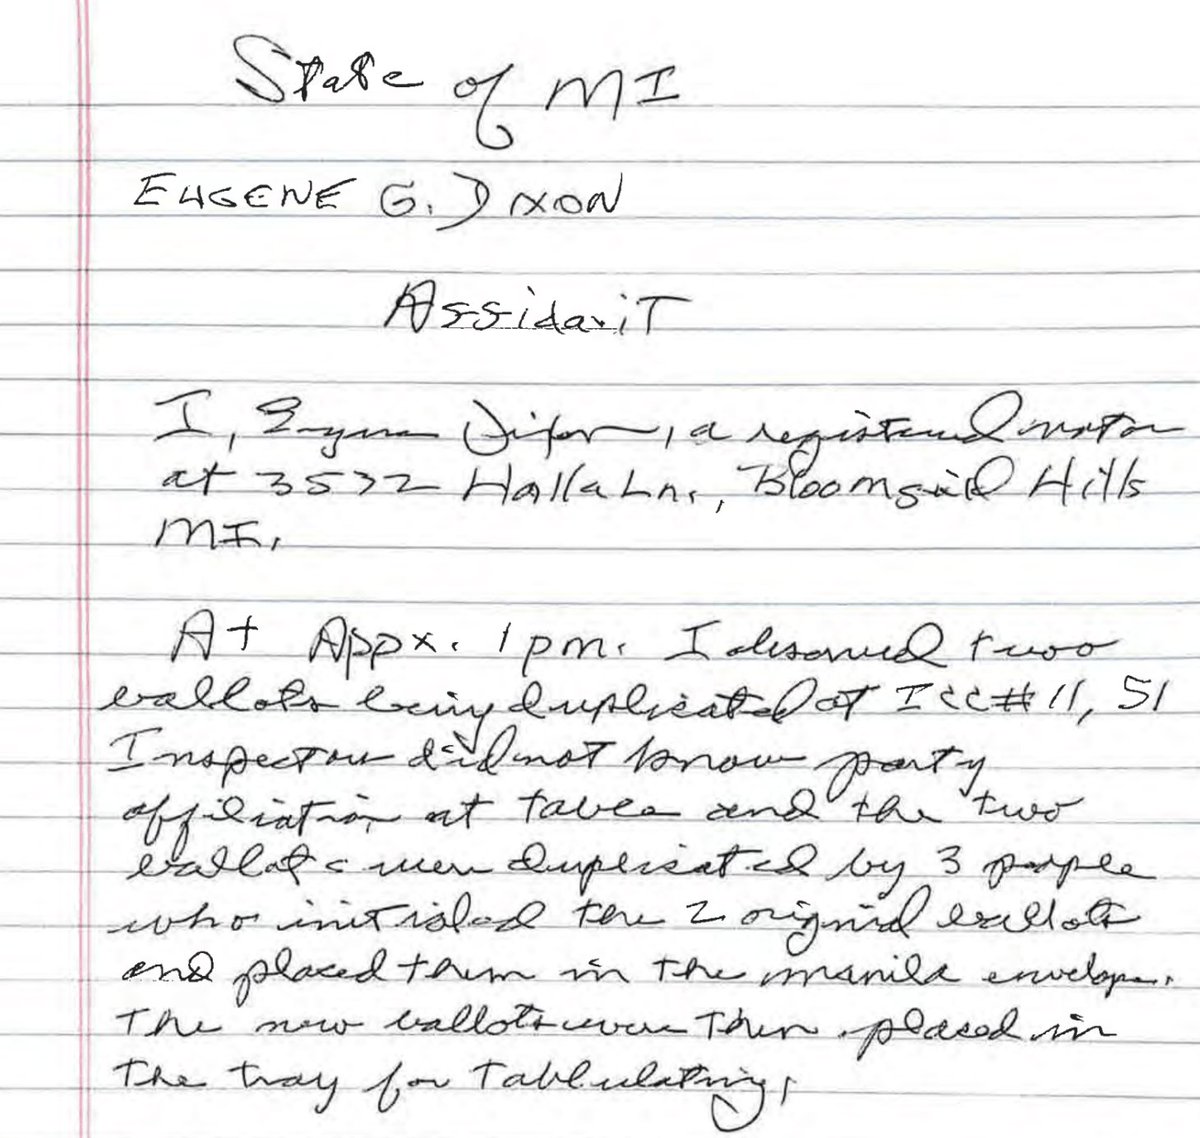 State of MI
EUGENE G. DIXON
AffidaviT
I, Eugene Dixon, a registered voter
at 3532 Halla Ln., Bloomfield Hills
MI.
At Appx. 1 pm. I observed two
ballots being duplicated at #11, 51
Inspector did not know party
affiliation at table and the two
ballots were duplicated by 3 people
who initialed the 2 original ballots
and placed them in the manila envelope.
The new ballots were then placed in
the tray for Tablulating.